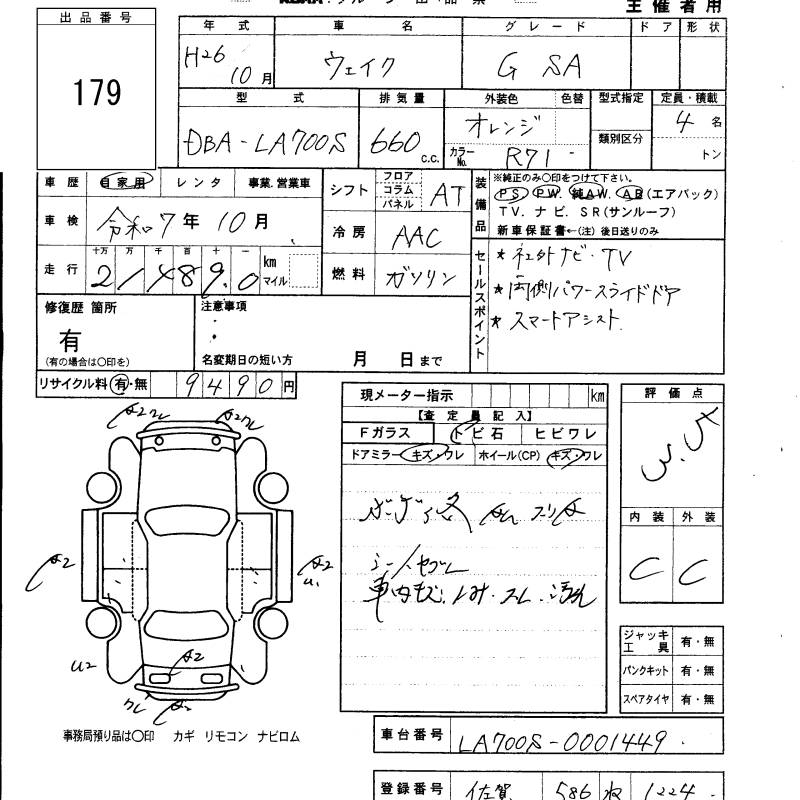 主催者用
出品番号
179
年式 車名 グレード ドア 形状
H26 10月 ウェイク G SA
型式 排気量 外装色 色替 型式指定 定員・積載
DBA-LA700S 660 c.c. オレンジ 類別区分 4名
カラーNo. R71 トン
車歴 自家用 レンタ 事業.営業車
車検 令和7年10月
走行 十万 万 千 百 十 一 km マイル
214890
シフト フロア コラム パネル AT
冷房 AAC
燃料 ガソリン
装備品
※純正のみ〇印をつけて下さい。
PS PW. 純AW. AB(エアバック)
TV. ナビ. SR(サンルーフ)
新車保証書←(注)後日送りのみ
セールスポイント
* 社外ナビ・TV
* 両側パワースライドドア
* スマートアシスト
修復歴 箇所
有
(有の場合は〇印を)
注意事項
名変期日の短い方 月 日まで
リサイクル料 有・無 9490円
現メーター指示 km
【査定員記入】
Fガラス トビ石 ヒビワレ
ドアミラー キズ・ワレ ホイール(CP) キズ・ワレ
シートヨゴレ
評価点
3.5
内装 外装
C C
ジャッキ工具 有・無
パンクキット 有・無
スペアタイヤ 有・無
A2
A2
A2
U2
A2
事務局預り品は〇印 カギ リモコン ナビロム
車台番号 LA700S-0001449
登録番号 佐賀 586 ね 1224